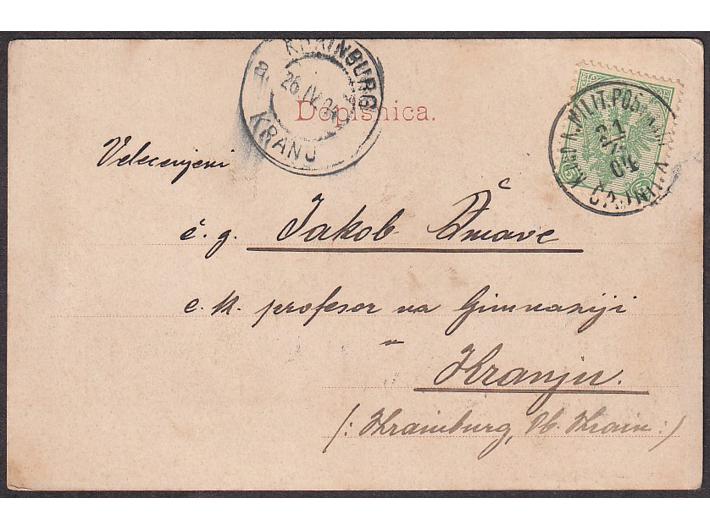 KRAINBURG
26 IV 04
KRANJ
a
Dopisnica.
K. und K. MILIT. POST
04
ČAJNIČA
5
Velecenjeni
č. g. Jakob Žmavc
c. k. profesor na Gimnaziji
v
Kranju.
(: Krainburg, Ob. Krain :)